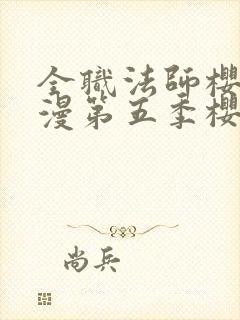 全職法師櫻
漫第五季櫻
尚兵